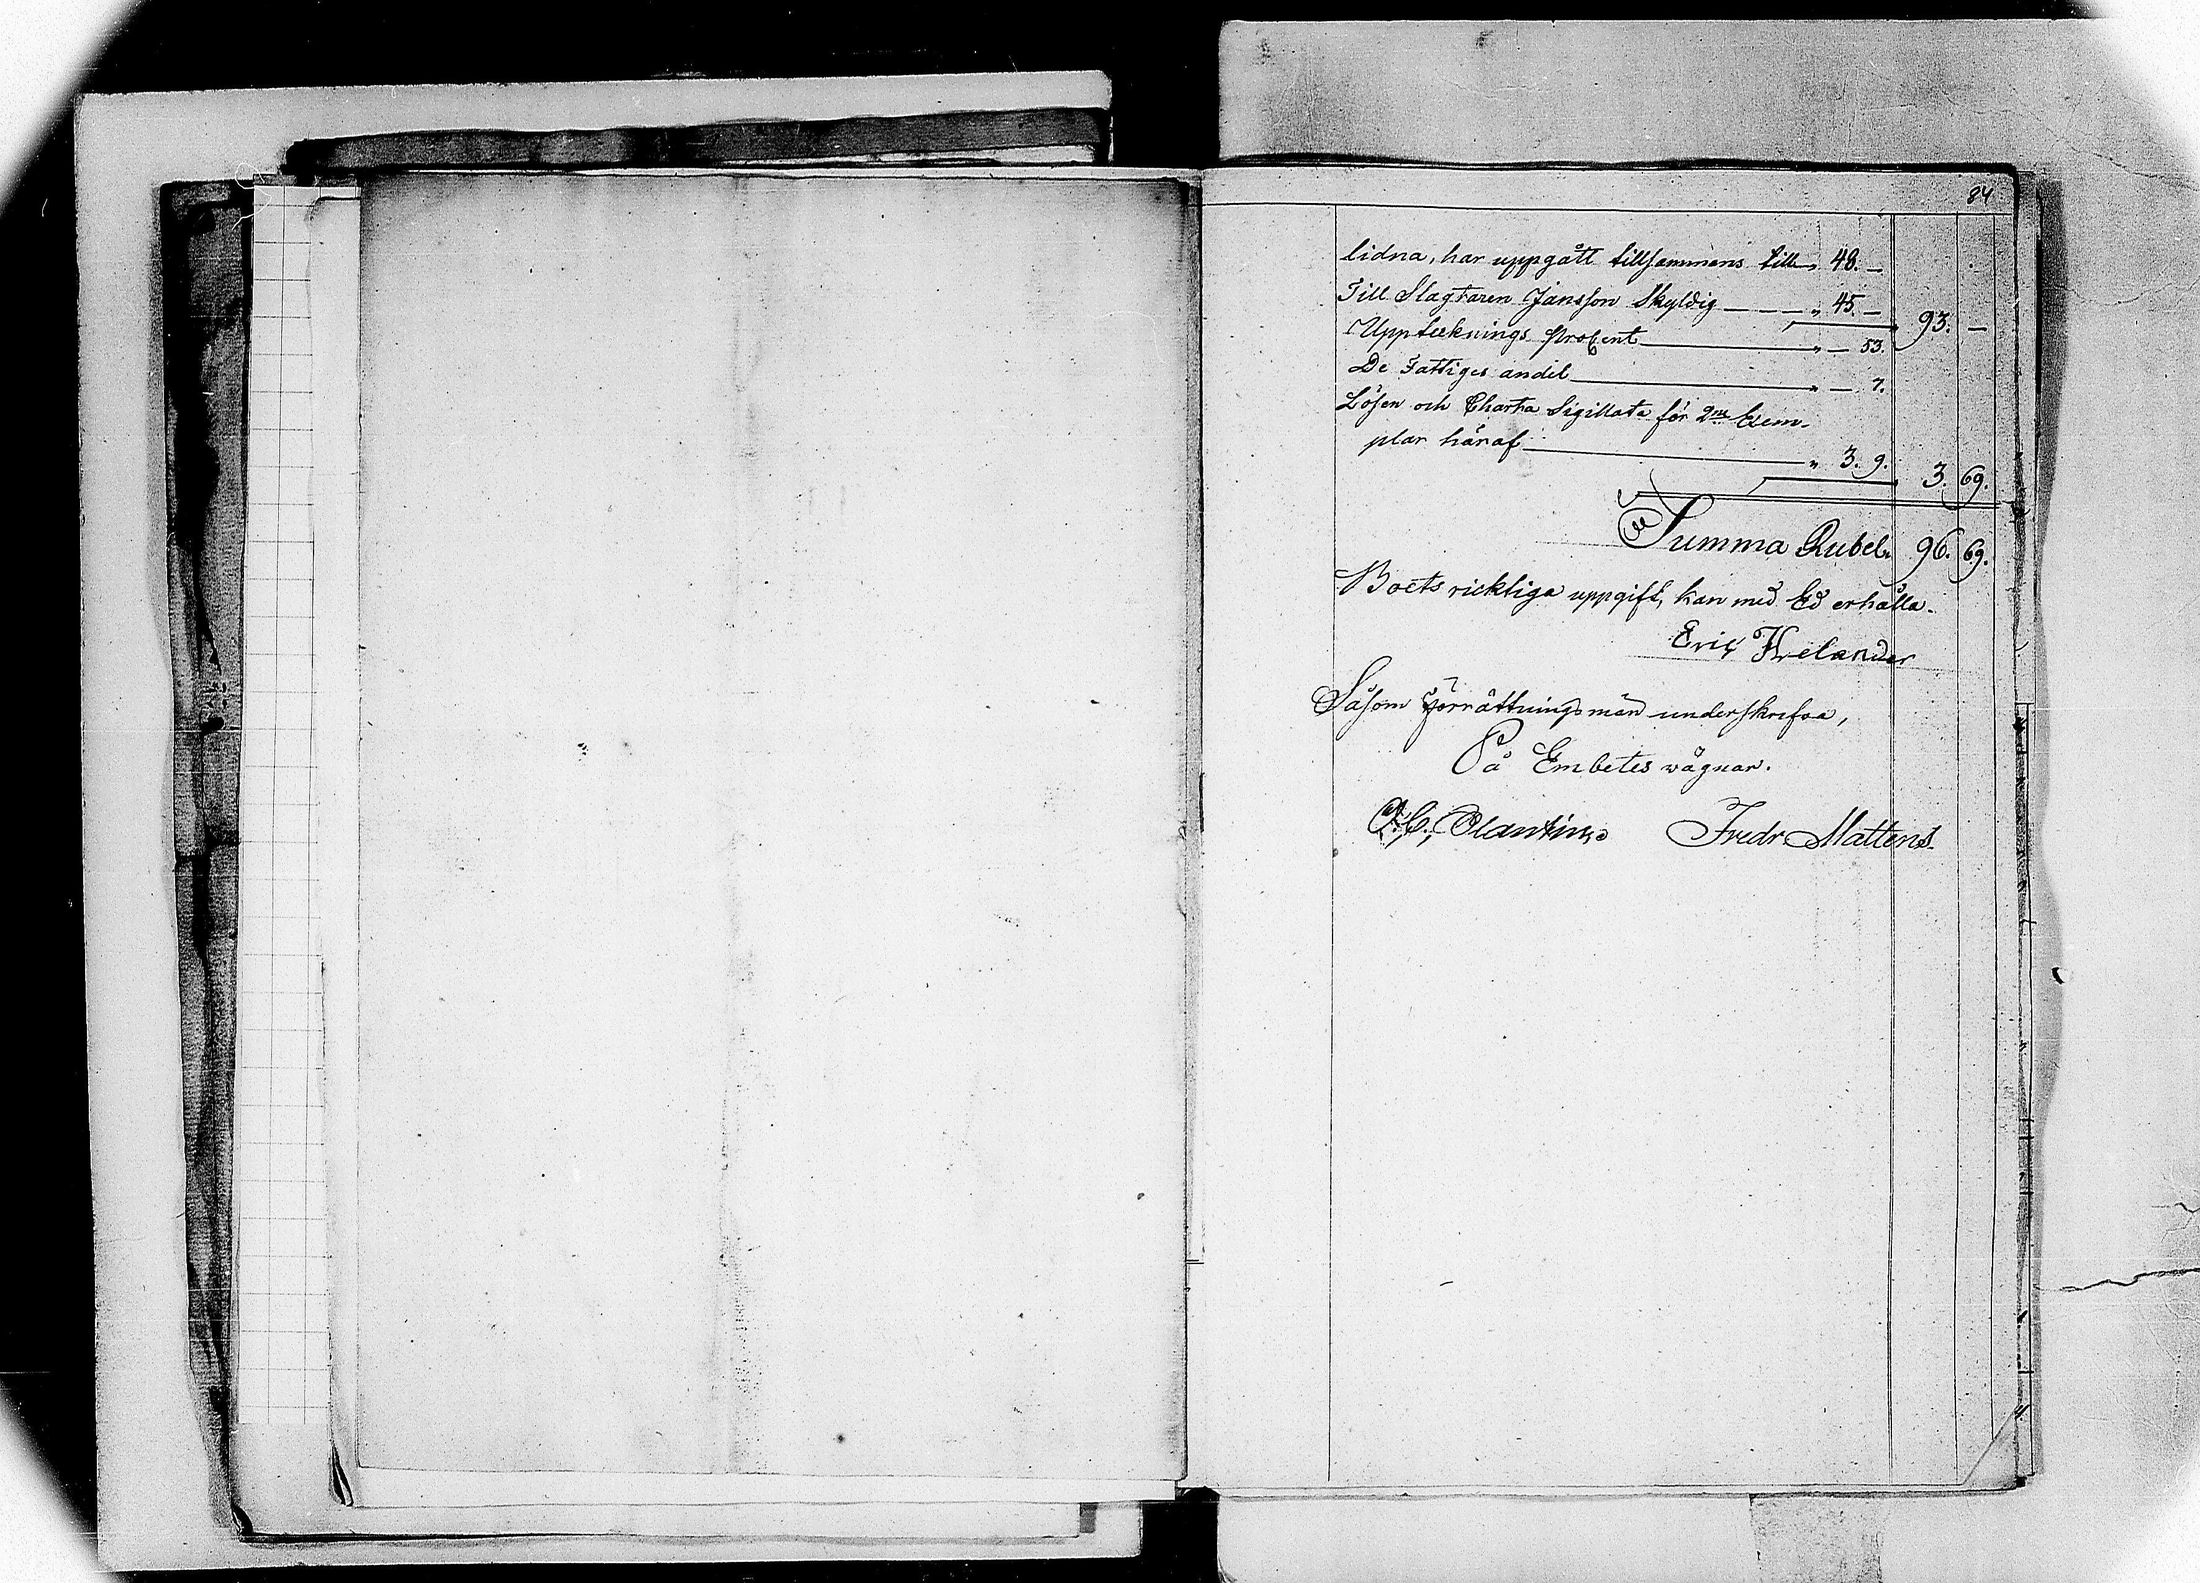 84
lidna, har uppgått tillsammans till " 48. —
Till Slagtaren Jansson Skyldig — — — " 45. — 93. —
Upptecknings Procent " — 53.
De Fattiges andel " — 7.
Lösen och Charta Sigillata för 2ne Exem-
plar häraf " 3. 9. 3. 69.
Summa Rubel 96. 69.
Boets ricktiga uppgift, kan med Ed erhålla.
Eric Helander
Såsom förrättningsmän underskrifva,
På Embetes vägnar.
Fredr Mattens